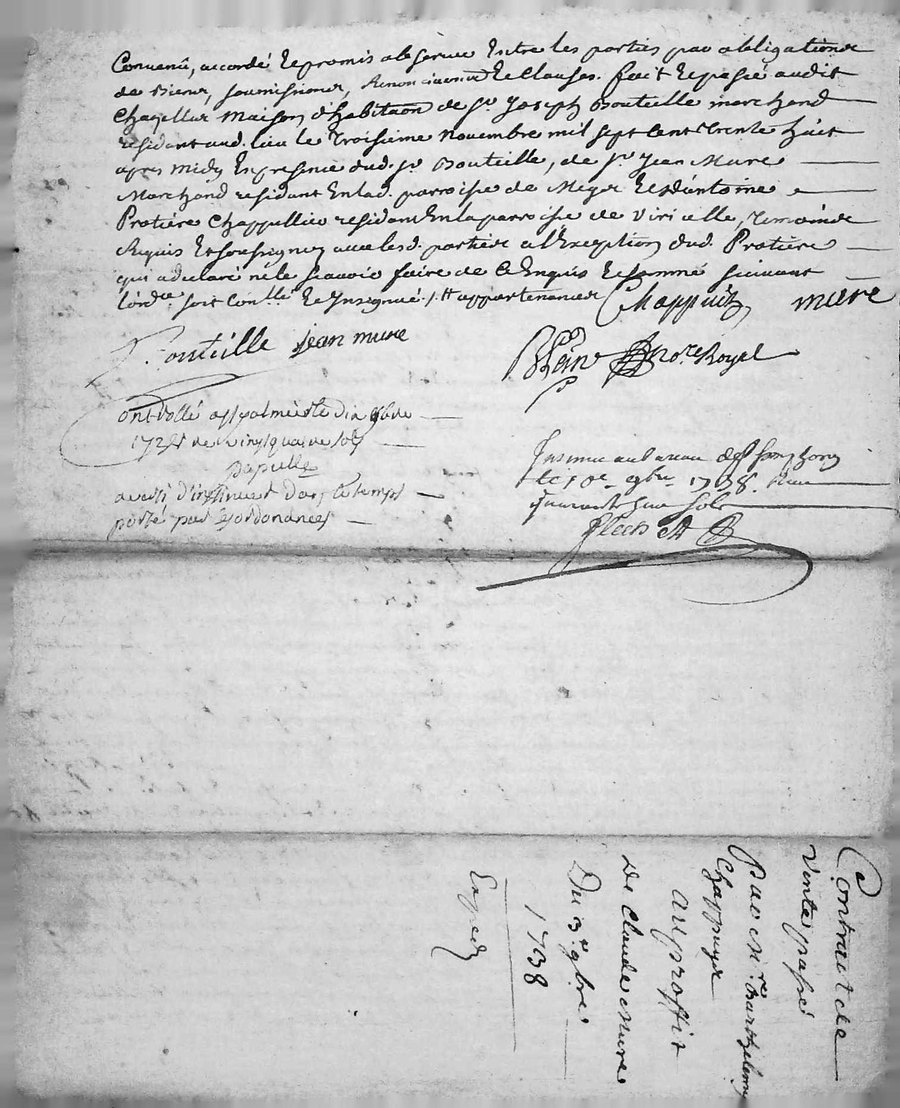 Convenû, accordé et promis observer Entre les parties par obligation de
de Biens, soumissions, Renonciations et Clauses. fait et passé audit
Chazelles maison d'habitaon de Sr. Joseph Bouteille marchand
residant aud. lieu le Troisieme Novembre mil sept Cent Trente huit
apres midy En presence dud. Sr. Bouteille, de Sr. Jean Mure
Marchand residant En lad. parroisse de Meys et d'Antoine
Protiere Chappellier residant En la parroisse de Viricelle, temoins
Requis Et soussignez avec lesd. parties a l'Exception dud. Protiere
qui a declaré ne le scavoir faire de Ce Enquis et sommé suivant
l'ordce. soit Conllé et Insinué
appartenances
Chappuis mure
Bouteille jean mure
nore Royal
Controllé a St palmier le dix 9bre
1738 de vingt quatre sols
averti d'insinuer dans le temps
porté par les ordonances
Insinué au bureau de St
le 10e 9bre 1738. Reçu
quarante sols
Contrait de
Vente passé
Par Mre Barthelemy
Chappuys
au proffit
De Claude Mure
Du 3e 9bre
1738
Exped